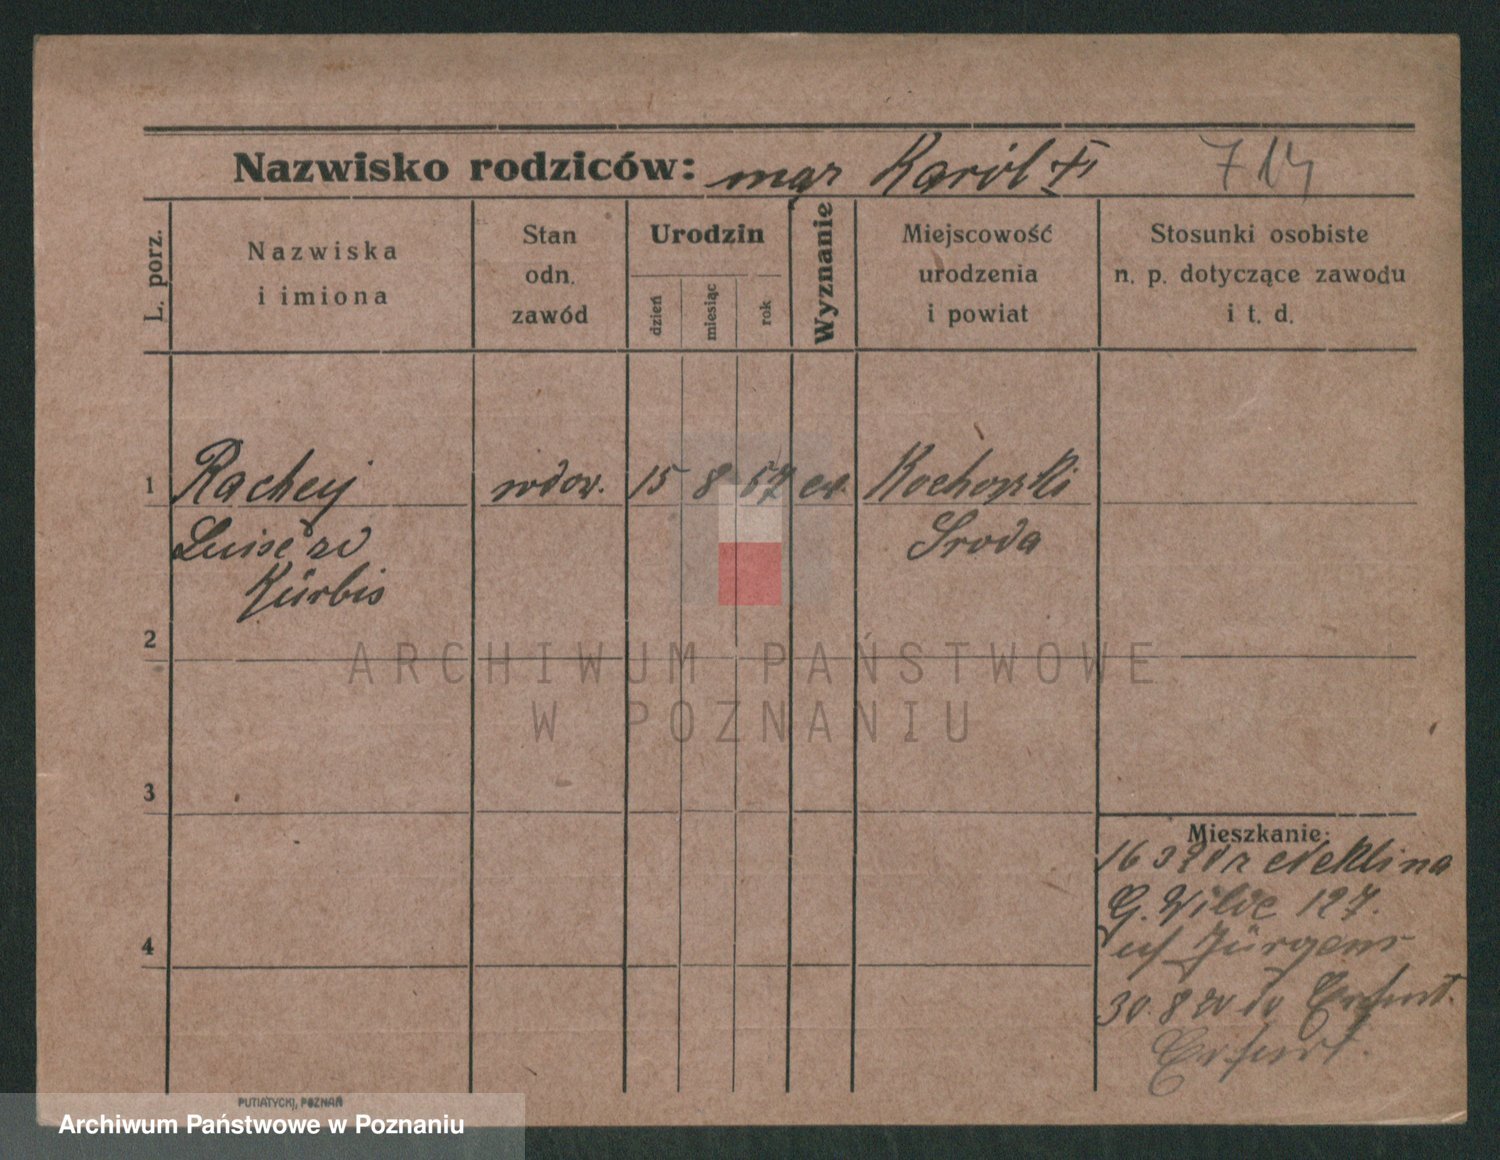 Nazwisko rodziców: mąż Karól 714
L. porz.
Nazwiska
i imiona
Stan
odn.
zawód
Urodzin
dzień
miesiąc
rok
Wyznanie
Miejscowość
urodzenia
i powiat
Stosunki osobiste
n. p. dotyczące zawodu
i t. d.
1 Rachuj wdow. 15 8 57 ew.
Luise zd Sroda
Kürbis
2
ARCHIWUM PAŃSTWOWE
W POZNANIU
3
Mieszkanie:
16 3 20 z Neklina
G. Wilde 127.
4
u/ Jürgens
30. 8 20 do Erfurt.
Erfurt.
PUTIATYCKI, POZNAŃ
Archiwum Państwowe w Poznaniu